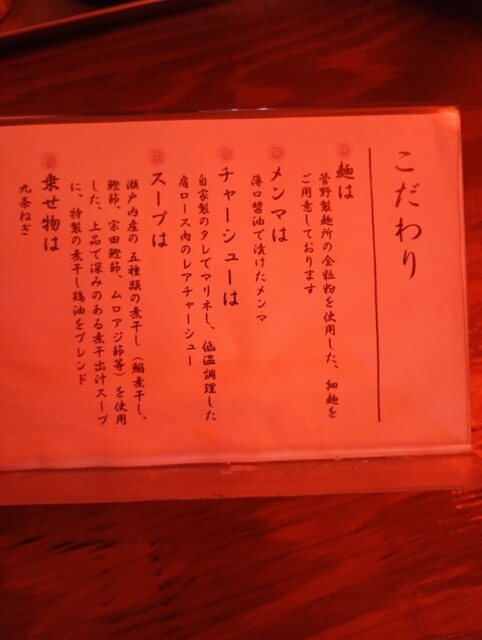 こだわり
麺は
菅野製麺所の全粒粉を使用した、細麺を
ご用意しております
メンマは
薄口醤油で漬けたメンマ
チャーシューは
自家製のタレでマリネし、低温調理した
肩ロース肉のレアチャーシュー
スープは
瀬戸内産の五種類の煮干し（鯵煮干し、
鰹節、宗田鰹節、ムロアジ節等）を使用
した、上品で深みのある煮干出汁スープ
に、特製の煮干し鶏油をブレンド
乗せ物は
九条ねぎ